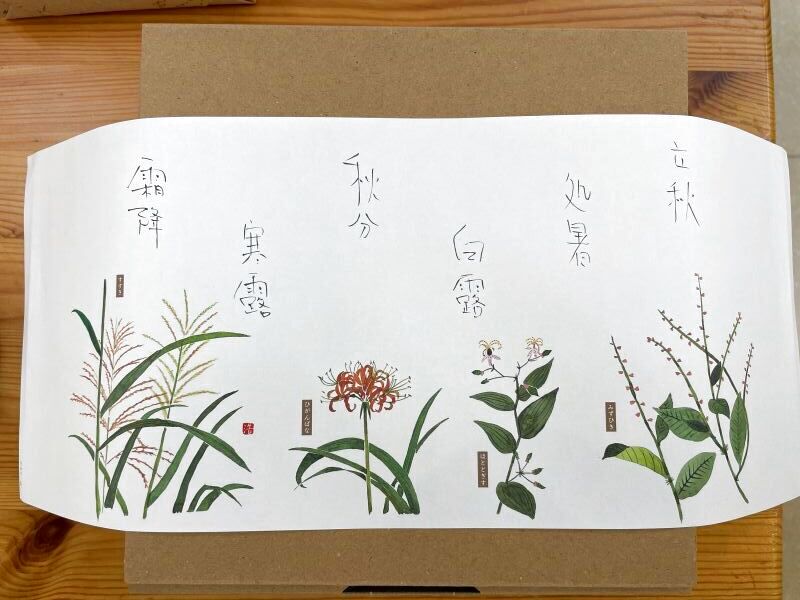 立秋
処暑
白露
秋分
寒露
霜降
みずひき
ほととぎす
ひがんばな
すすき